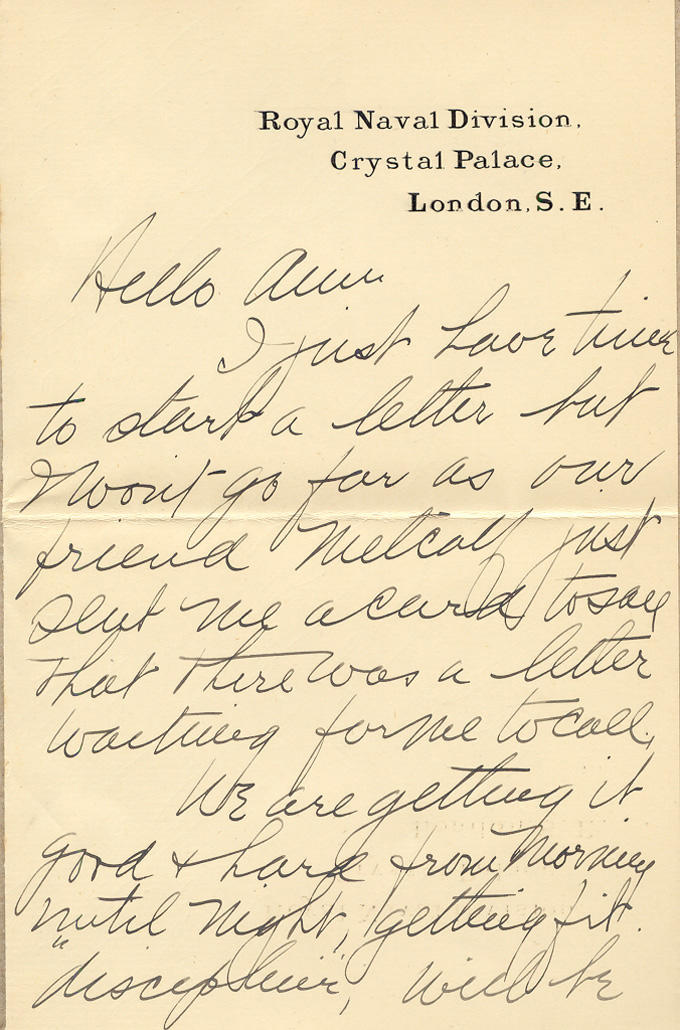 Royal Naval Division,
Crystal Palace,
London, S. E.
Hello Ann
I just have time
to start a letter but
I won't go far as our
friend Metcalf just
sent me a card, to say
that there was a letter
waiting for me to call.
We are getting it
good & hard from Morning
until Night, getting fit.
"discipline", will be